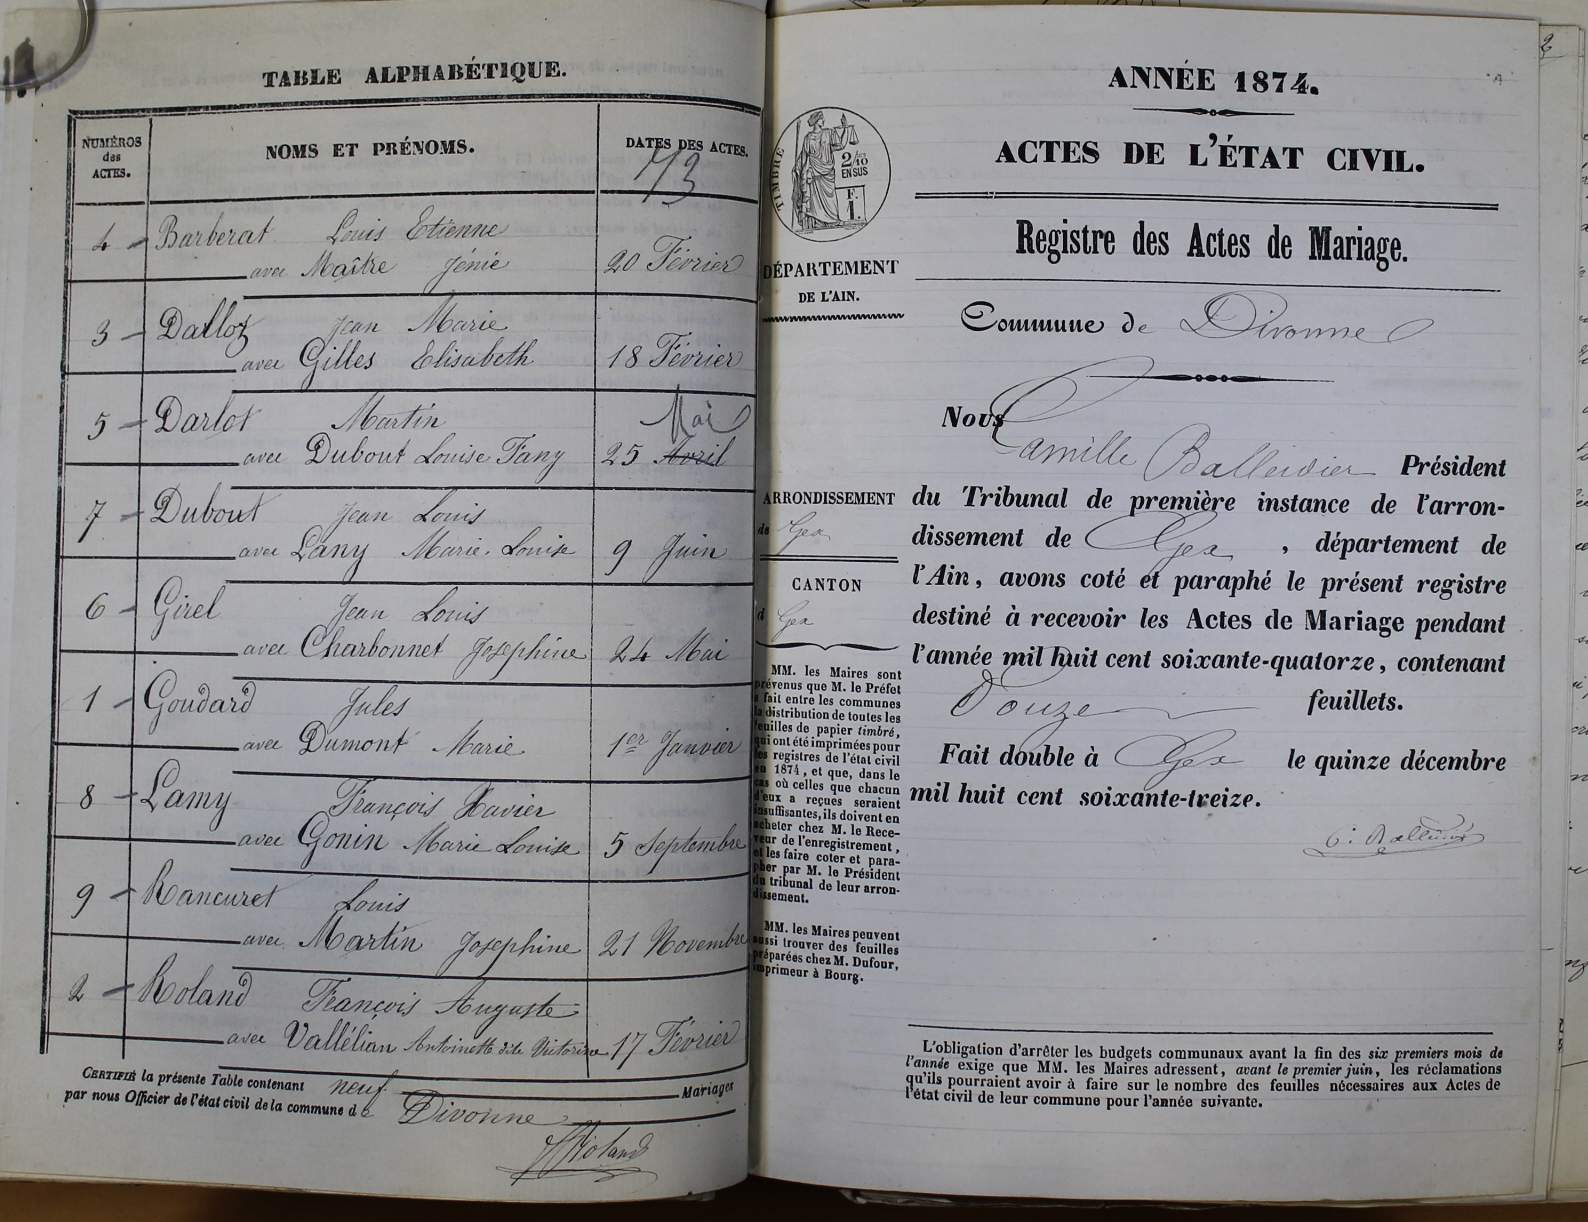 TABLE ALPHABÉTIQUE.
NUMÉROS des ACTES.
NOMS ET PRÉNOMS.
DATES DES ACTES.
73
4 Barberat Louis Etienne
avec Maître Jénie 20 Février
3 Dalloz Jean Marie
avec Gilles Elisabeth 18 Février
5 Darlot Martin Mai
avec Dubout Louise Fany 25 Avril
7 Dubout Jean Louis
avec Lany Marie Louise 9 Juin
6 Girel Jean Louis
avec Charbonnet Josephine 24 Mai
1 Goudard Jules
avec Dumont Marie 1er Janvier
8 Lamy François Xavier
avec Gonin Marie Louise 5 Septembre
9 Rancuret Louis
avec Martin Josephine 21 Novembre
2 Roland François Auguste
avec Vallélian Antoinette dite Victorine 17 Février
CERTIFIÉ la présente Table contenant neuf Mariages
par nous Officier de l'état civil de la commune de Divonne
Roland
TIMBRE
2/10
EN SUS
F.
1.
DÉPARTEMENT
DE L'AIN.
ARRONDISSEMENT
de Gex
CANTON
d Gex
MM. les Maires sont
prévenus que M. le Préfet
a fait entre les communes
la distribution de toutes les
feuilles de papier timbré,
qui ont été imprimées pour
les registres de l'état civil
en 1874, et que, dans le
cas où celles que chacun
d'eux a reçues seraient
insuffisantes, ils doivent en
acheter chez M. le Rece-
veur de l'enregistrement,
et les faire coter et para-
pher par M. le Président
du tribunal de leur arron-
dissement.
MM. les Maires peuvent
aussi trouver des feuilles
préparées chez M. Dufour,
imprimeur à Bourg.
ANNÉE 1874.
ACTES DE L'ÉTAT CIVIL.
Registre des Actes de Mariage.
Commune de Divonne
Nous Camille Balleidier Président
du Tribunal de première instance de l'arron-
dissement de Gex, département de
l'Ain, avons coté et paraphé le présent registre
destiné à recevoir les Actes de Mariage pendant
l'année mil huit cent soixante-quatorze, contenant
Douze feuillets.
Fait double à Gex le quinze décembre
mil huit cent soixante-treize.
C. Balleidier
L'obligation d'arrêter les budgets communaux avant la fin des six premiers mois de
l'année exige que MM. les Maires adressent, avant le premier juin, les réclamations
qu'ils pourraient avoir à faire sur le nombre des feuilles nécessaires aux Actes de
l'état civil de leur commune pour l'année suivante.